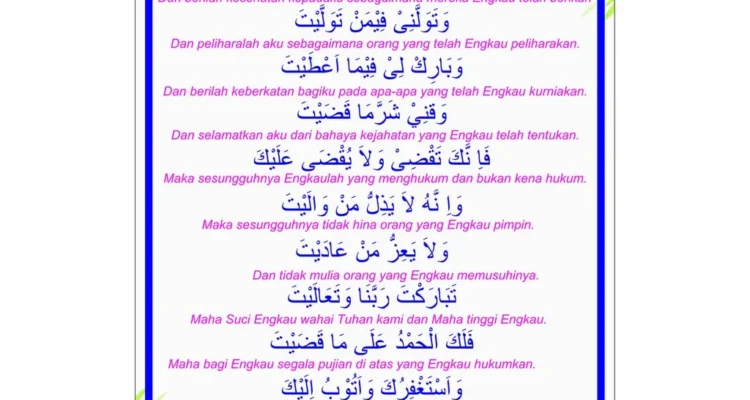 Dan berilah kesihatan kepadaku sebagaimana mereka Engkau telah berikan
وَتَوَلَّنِىْ فِيْمَنْ تَوَلَّيْتَ
Dan peliharalah aku sebagaimana orang yang telah Engkau peliharakan.
وَبَارِكْ لِىْ فِيْمَا اَعْطَيْتَ
Dan berilah keberkatan bagiku pada apa-apa yang telah Engkau kurniakan.
وَقِنِيْ شَرَّمَا قَضَيْتَ
Dan selamatkan aku dari bahaya kejahatan yang Engkau telah tentukan.
فَاِ نَّكَ تَقْضِىْ وَلاَ يُقْضَى عَلَيْكَ
Maka sesungguhnya Engkaulah yang menghukum dan bukan kena hukum.
وَاِ نَّهُ لاَ يَذِلُّ مَنْ وَالَيْتَ
Maka sesungguhnya tidak hina orang yang Engkau pimpin.
وَلاَ يَعِزُّ مَنْ عَادَيْتَ
Dan tidak mulia orang yang Engkau memusuhinya.
تَبَارَكْتَ رَبَّنَا وَتَعَالَيْتَ
Maha Suci Engkau wahai Tuhan kami dan Maha tinggi Engkau.
فَلَكَ الْحَمْدُ عَلَى مَا قَضَيْتَ
Maha bagi Engkau segala pujian di atas yang Engkau hukumkan.
وَاَسْتَغْفِرُكَ وَاَتُوْبُ اِلَيْكَ